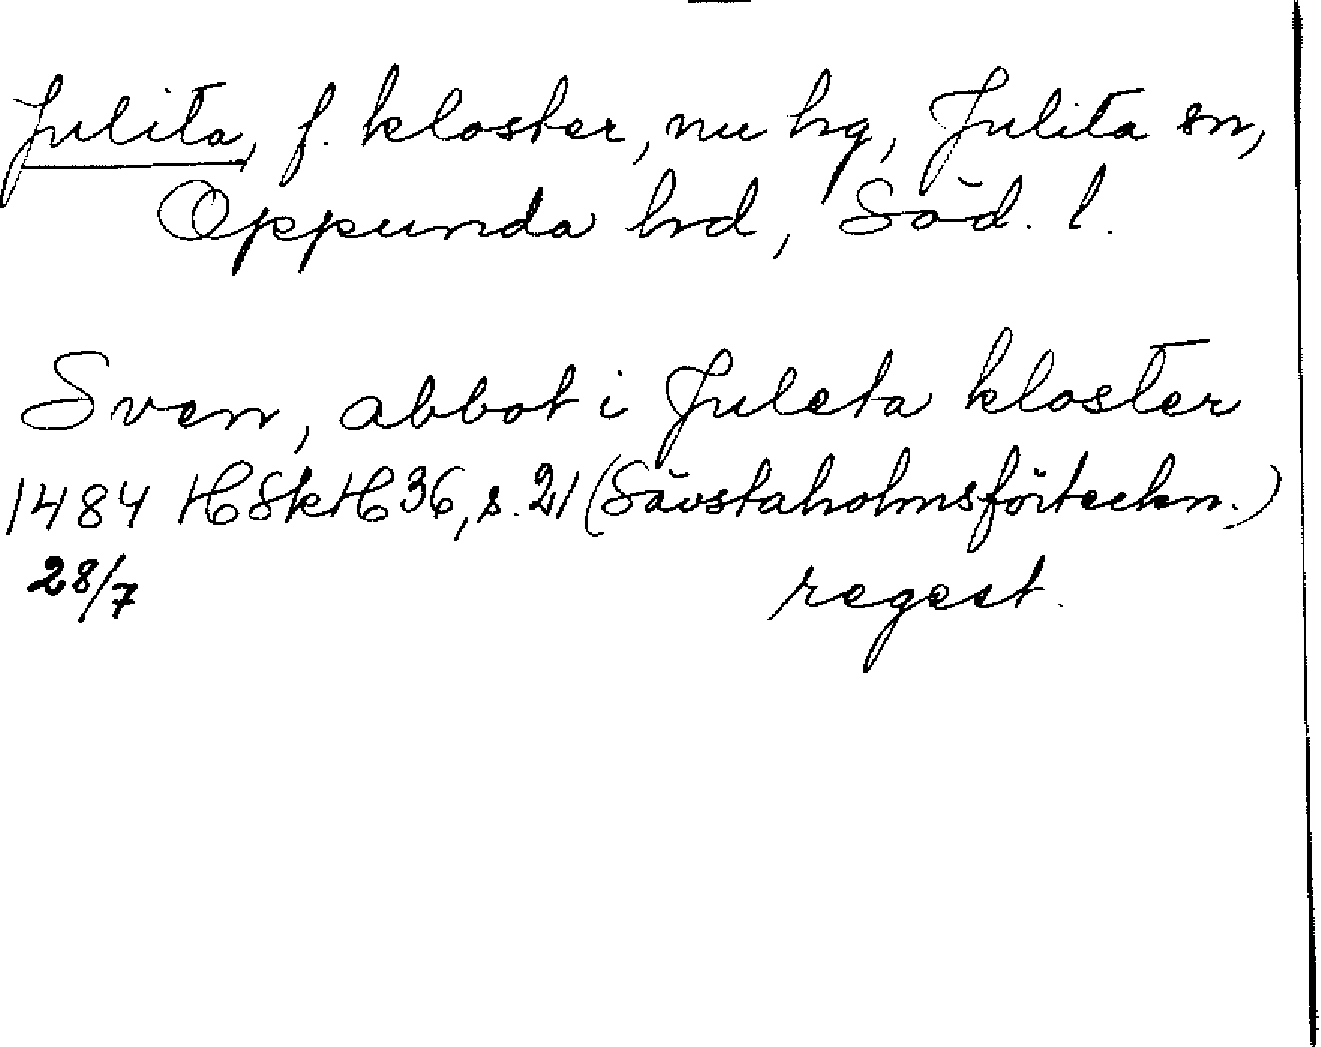 Julita, f. kloster, nu hg, Julita sn,
Oppunda hd, Söd. l.
Sven, abbot i Juleta kloster
1484 HSkH 36, s. 21 (Sävstaholmsförteckn.)
28/7 regest.